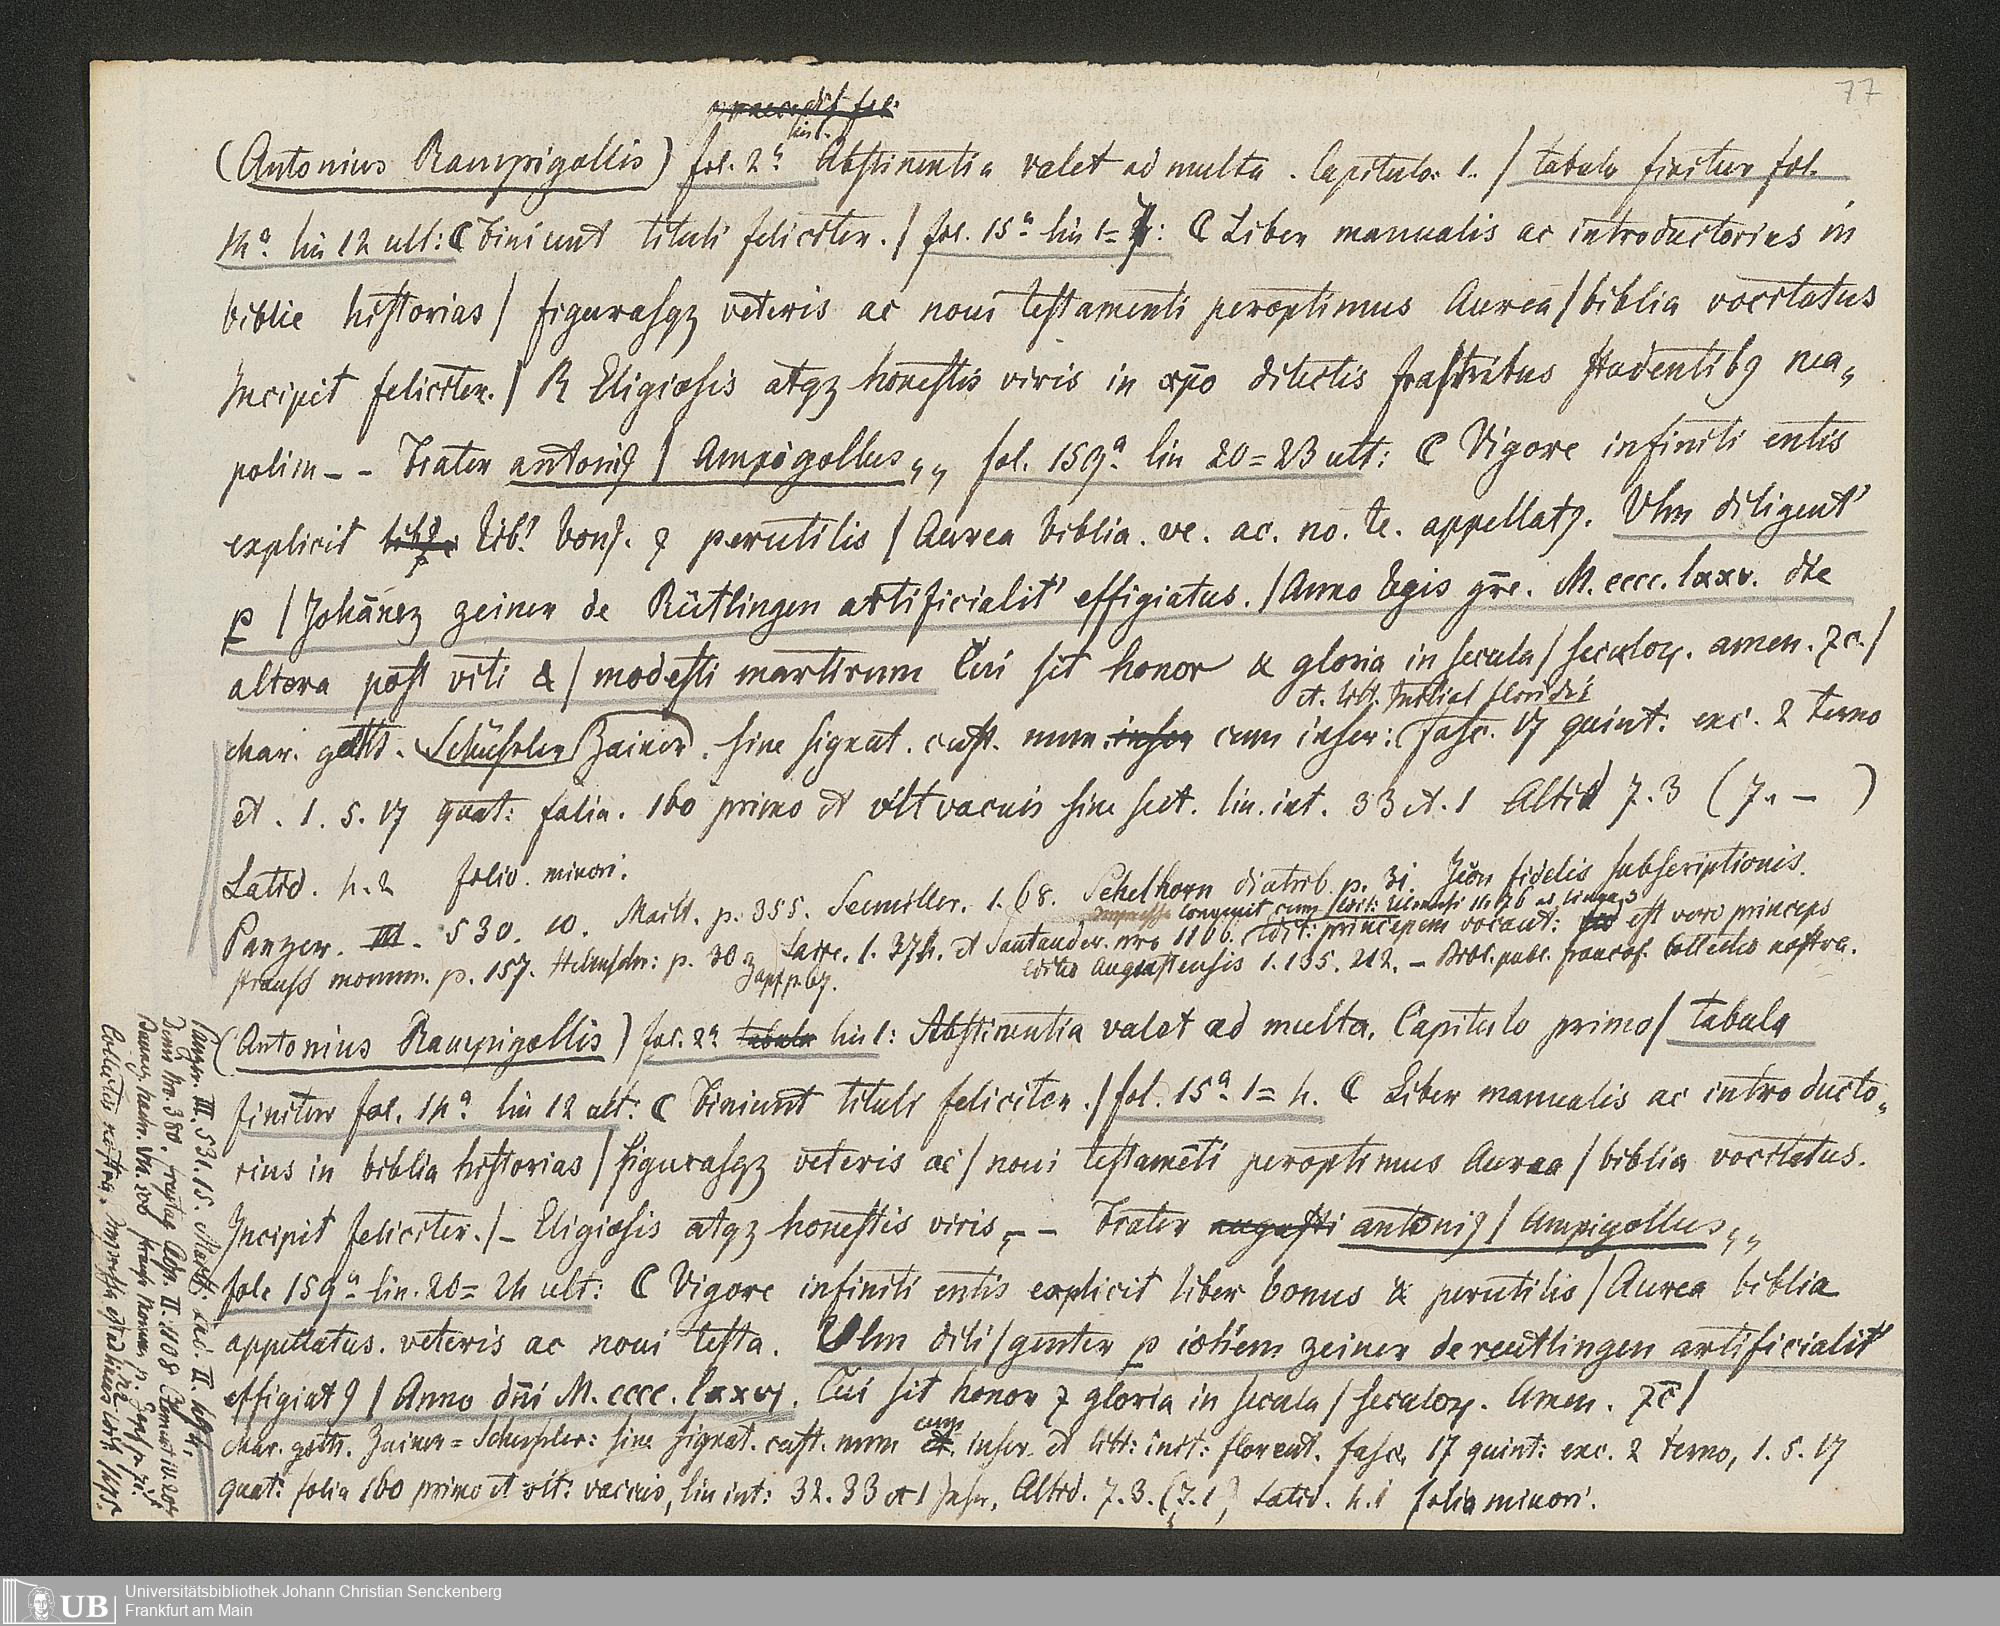 77
praecedit fol.
lin 1.
(Antonius Rampigollis) fol. 2ª Abstinentia valet ad multa. Capitulo: 1. / tabula finitur fol.
14ª lin 12 ult: ℂ Finiunt tituli feliciter. / fol. 15ª lin 1= : ℂ Liber manualis ac introductorius in
biblie historias / figurasqz veteris ac noui testamenti peroptimus Aurea / biblia vocitatus
Incipit feliciter. / R Eligiosis atqz honestis viris in xp̄o dilectis fratribus studentibꝯ nea„
polim – – Frater antoniꝯ / Ampigollus„„ fol. 159ª lin 20=23 ult: ℂ Vigore infiniti entis
explicit lib' bonꝯ. ⁊ perutilis / Aurea biblia. ve. ac. no. te. appellatꝯ. Vlm diligent'
p / Johānez zeiner de Rütlingen artificialit' effigiatus. / Anno legis gr̄e. M. cccc. lxxv. die
altera post viti & / modesti martirum Cui sit honor & gloria in secula / seculoꝝ. amen. ⁊c. /
et. litt. initial floridis
char. goth. Schüssler Zainer. sine signat. cust. num. inser cum inser: fasc. 17 quint: exc. 2 terno
et. 1. 5. 17 quat: folia. 160 primo et ult vacuis sine sect. lin. int. 33 et. 1 Altid 7. 3 (7. – )
Latid. 4. 2 folio. minori.
Panzer. III. 530. 10. Maitt. p. 355. Seemiller. 1. 68. Schelhorn diatrib. p. 31. Icon fidelis subscriptionis.
convenit cum
Strauss monum. p. 157. Helmschr: p. 30 Laire. 1. 374. et Santander. nro 1106. Edit: principem vocant: est vero princeps
Zapf p. 67. editio Augustensis 1. 135. 212. – Bibl. publ. francof. Collectio nostra.
(Antonius Rampigollis) fol. 2ª tabula lin 1: Abstinentia valet ad multa. Capitulo primo / tabula
finitur fol. 14ª lin 12 ult: ℂ Finiunt tituli feliciter. / fol. 15ª 1=4. ℂ Liber manualis ac introducto„
rius in biblia historias / figurasqz veteris ac / noui testamēti peroptimus Aurea / biblia vocitatus.
Incipit feliciter. / – Eligiosis atqz honestis viris – – Frater augusti antoniꝯ / Ampigollus„„
fol. 159ª lin. 20=24 ult: ℂ Vigore infiniti entis explicit liber bonus & perutilis / Aurea biblia
appellatus. veteris ac noui testa. Vlm dili / genter p iohēm zeiner de reutlingen artificialit'
effigiatꝯ / Anno dn̄i M. cccc. lxxvj. Cui sit honor ⁊ gloria in secula / seculoꝝ. Amen. ⁊c̄ /
char. goth. Zainer=Schussler: sine signat. cust. num cum inser. et litt: init: florent. fasc. 17 quint: exc. 2 terno, 1. 5. 17
quat: folia 160 primo et ult: vacuis, lin int: 32. 33 et 1 Inser, Altid. 7. 3. (7. 1) Latid. 4. 1 folio minori.
Panzer. III. 531. 15. Maitt.
Denis Nr. 380. freytag App. II. 1108
Collectio nostra. Impressa est ad lineas
Universitätsbibliothek Johann Christian Senckenberg
Frankfurt am Main
UB